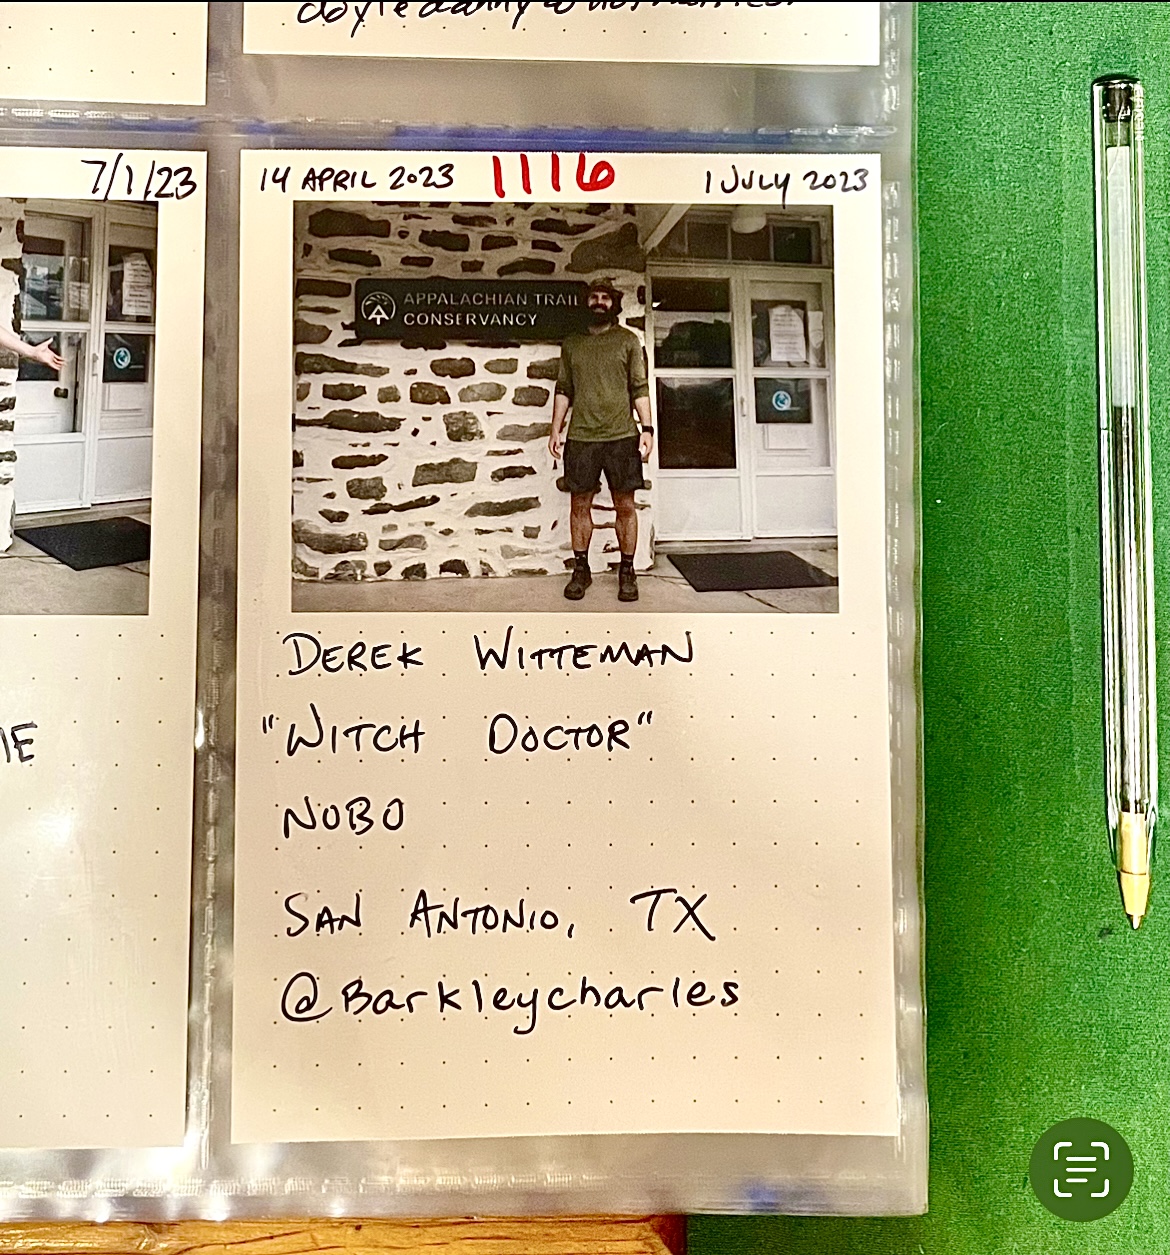 7/1/23
14 APRIL 2023 1116 1 JULY 2023
APPALACHIAN TRAIL
CONSERVANCY
DEREK WITTEMAN
"WITCH DOCTOR"
NOBO
SAN ANTONIO, TX
@Barkleycharles